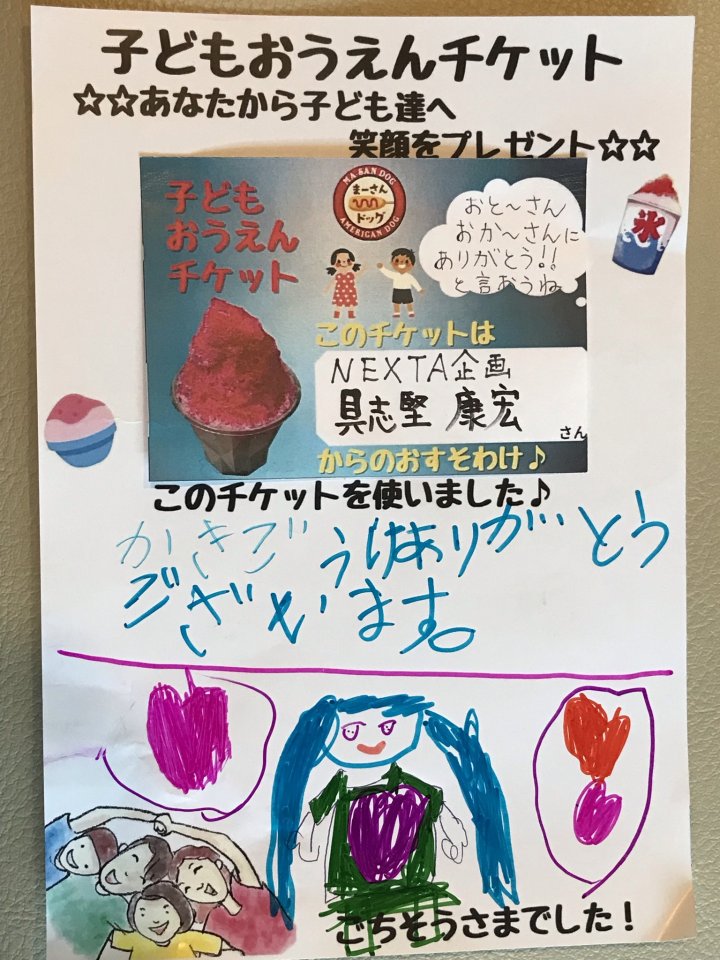 子どもおうえんチケット
☆☆あなたから子ども達へ
笑顔をプレゼント☆☆
氷
子ども
おうえん
チケット
MA SAN DOG
まーさん
ドッグ
AMERICAN DOG
おと〜さん
おか〜さんに
ありがとう!!
と言おうね
このチケットは
NEXTA企画
具志堅 康宏
さん
からのおすそわけ♪
このチケットを使いました♪
かきごうりありがとう
ございます。
ごちそうさまでした!